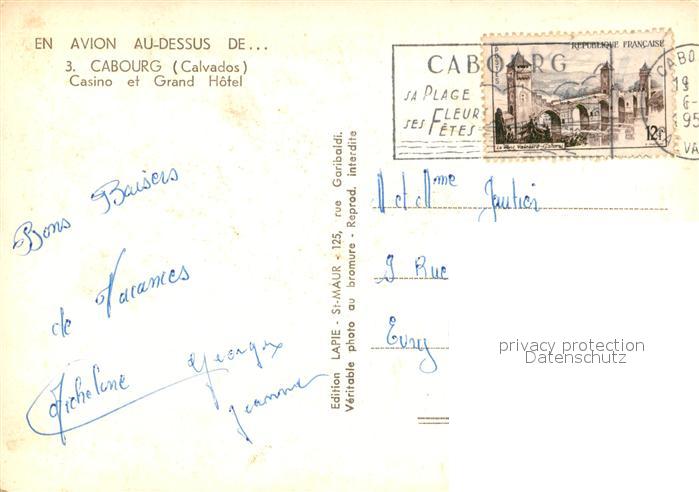 EN AVION AU-DESSUS DE...
3. CABOURG (Calvados)
Casino et Grand Hôtel
Bons Baisers
de Vacances
Micheline Georges
Jeanne
Edition LAPIE - St-MAUR - 125, rue Garibaldi.
Véritable photo au bromure - Reprod. interdite
CABOURG
SA PLAGE
SES FLEURS
FÊTES
POSTES
REPUBLIQUE FRANÇAISE
12F
Le Pont Valentré-Cahors
CABO
19
6
195
M et Mme Gautier
9 Rue
Evry
privacy protection
Datenschutz